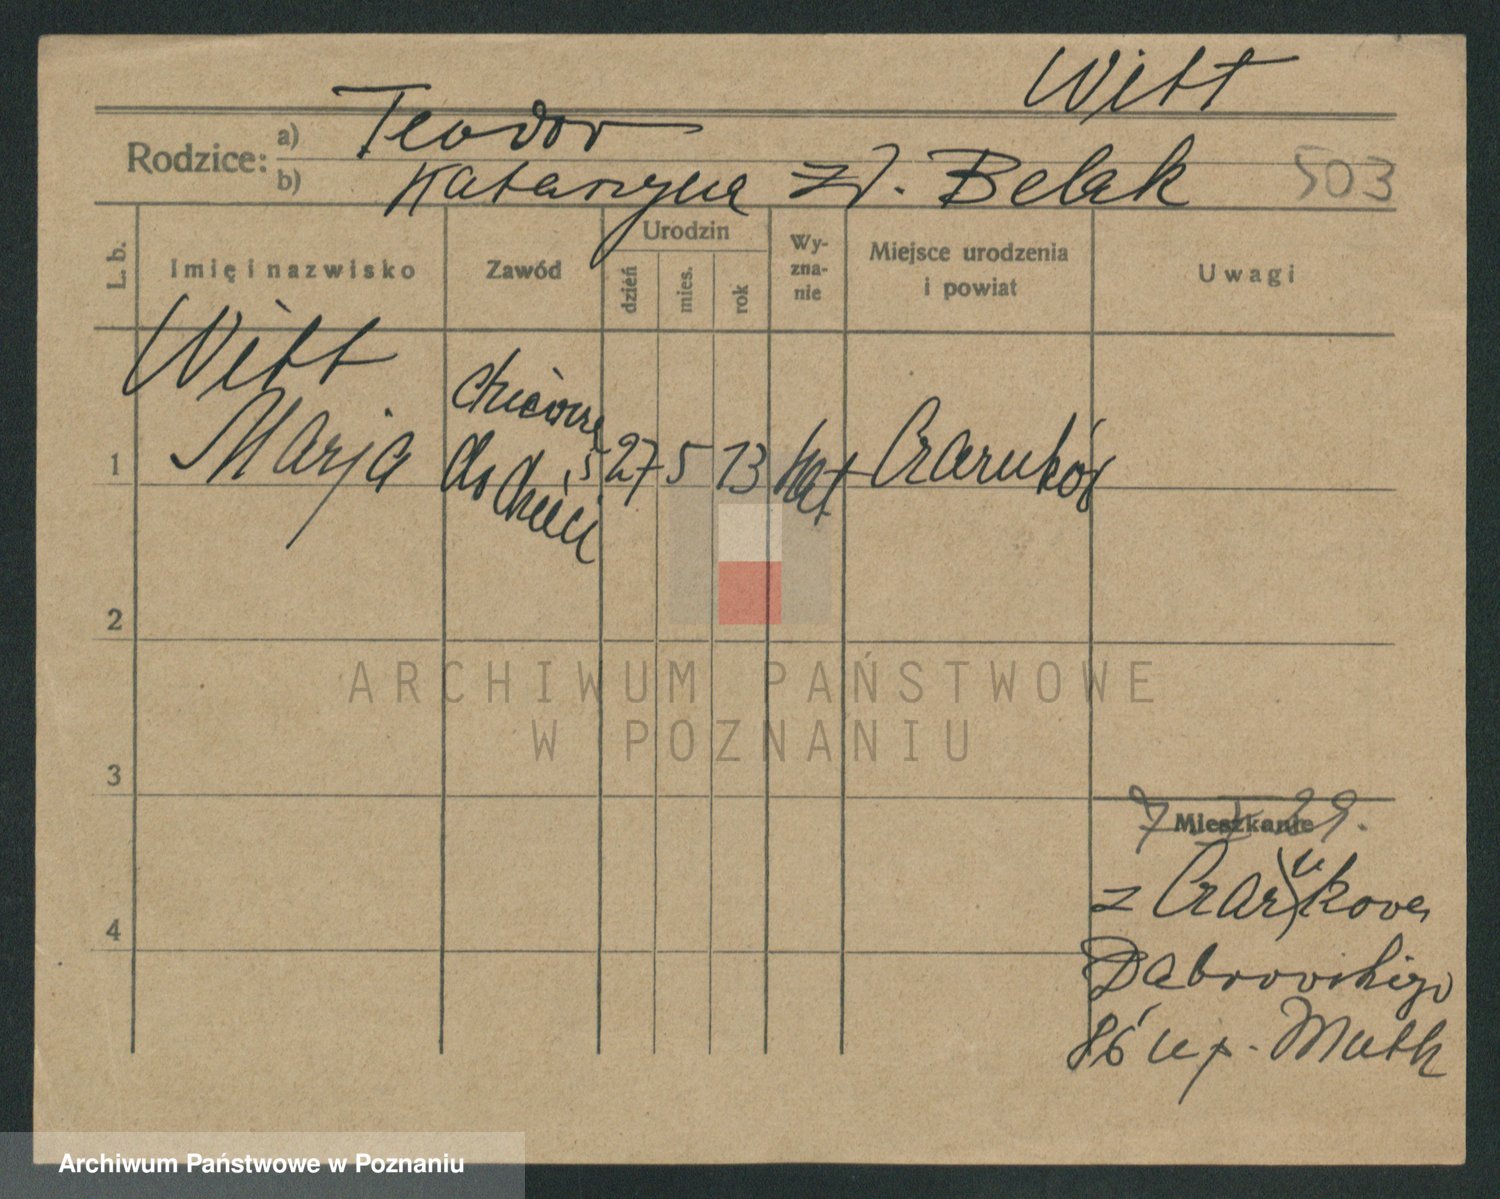 Witt
Rodzice: a) Teodor
b) Katarzyna zd. Belak 503
L. b. Imię i nazwisko Zawód Urodzin dzień mies. rok Wyznanie Miejsce urodzenia i powiat Uwagi
Witt
1 Marja do dzieci 27 5 13 kat Czarnków
2
3
4
7 29.
Mieszkanie
z Czarnkowa
Dabrowskigo
86 u p. Muth
ARCHIWUM PAŃSTWOWE
W POZNANIU
Archiwum Państwowe w Poznaniu